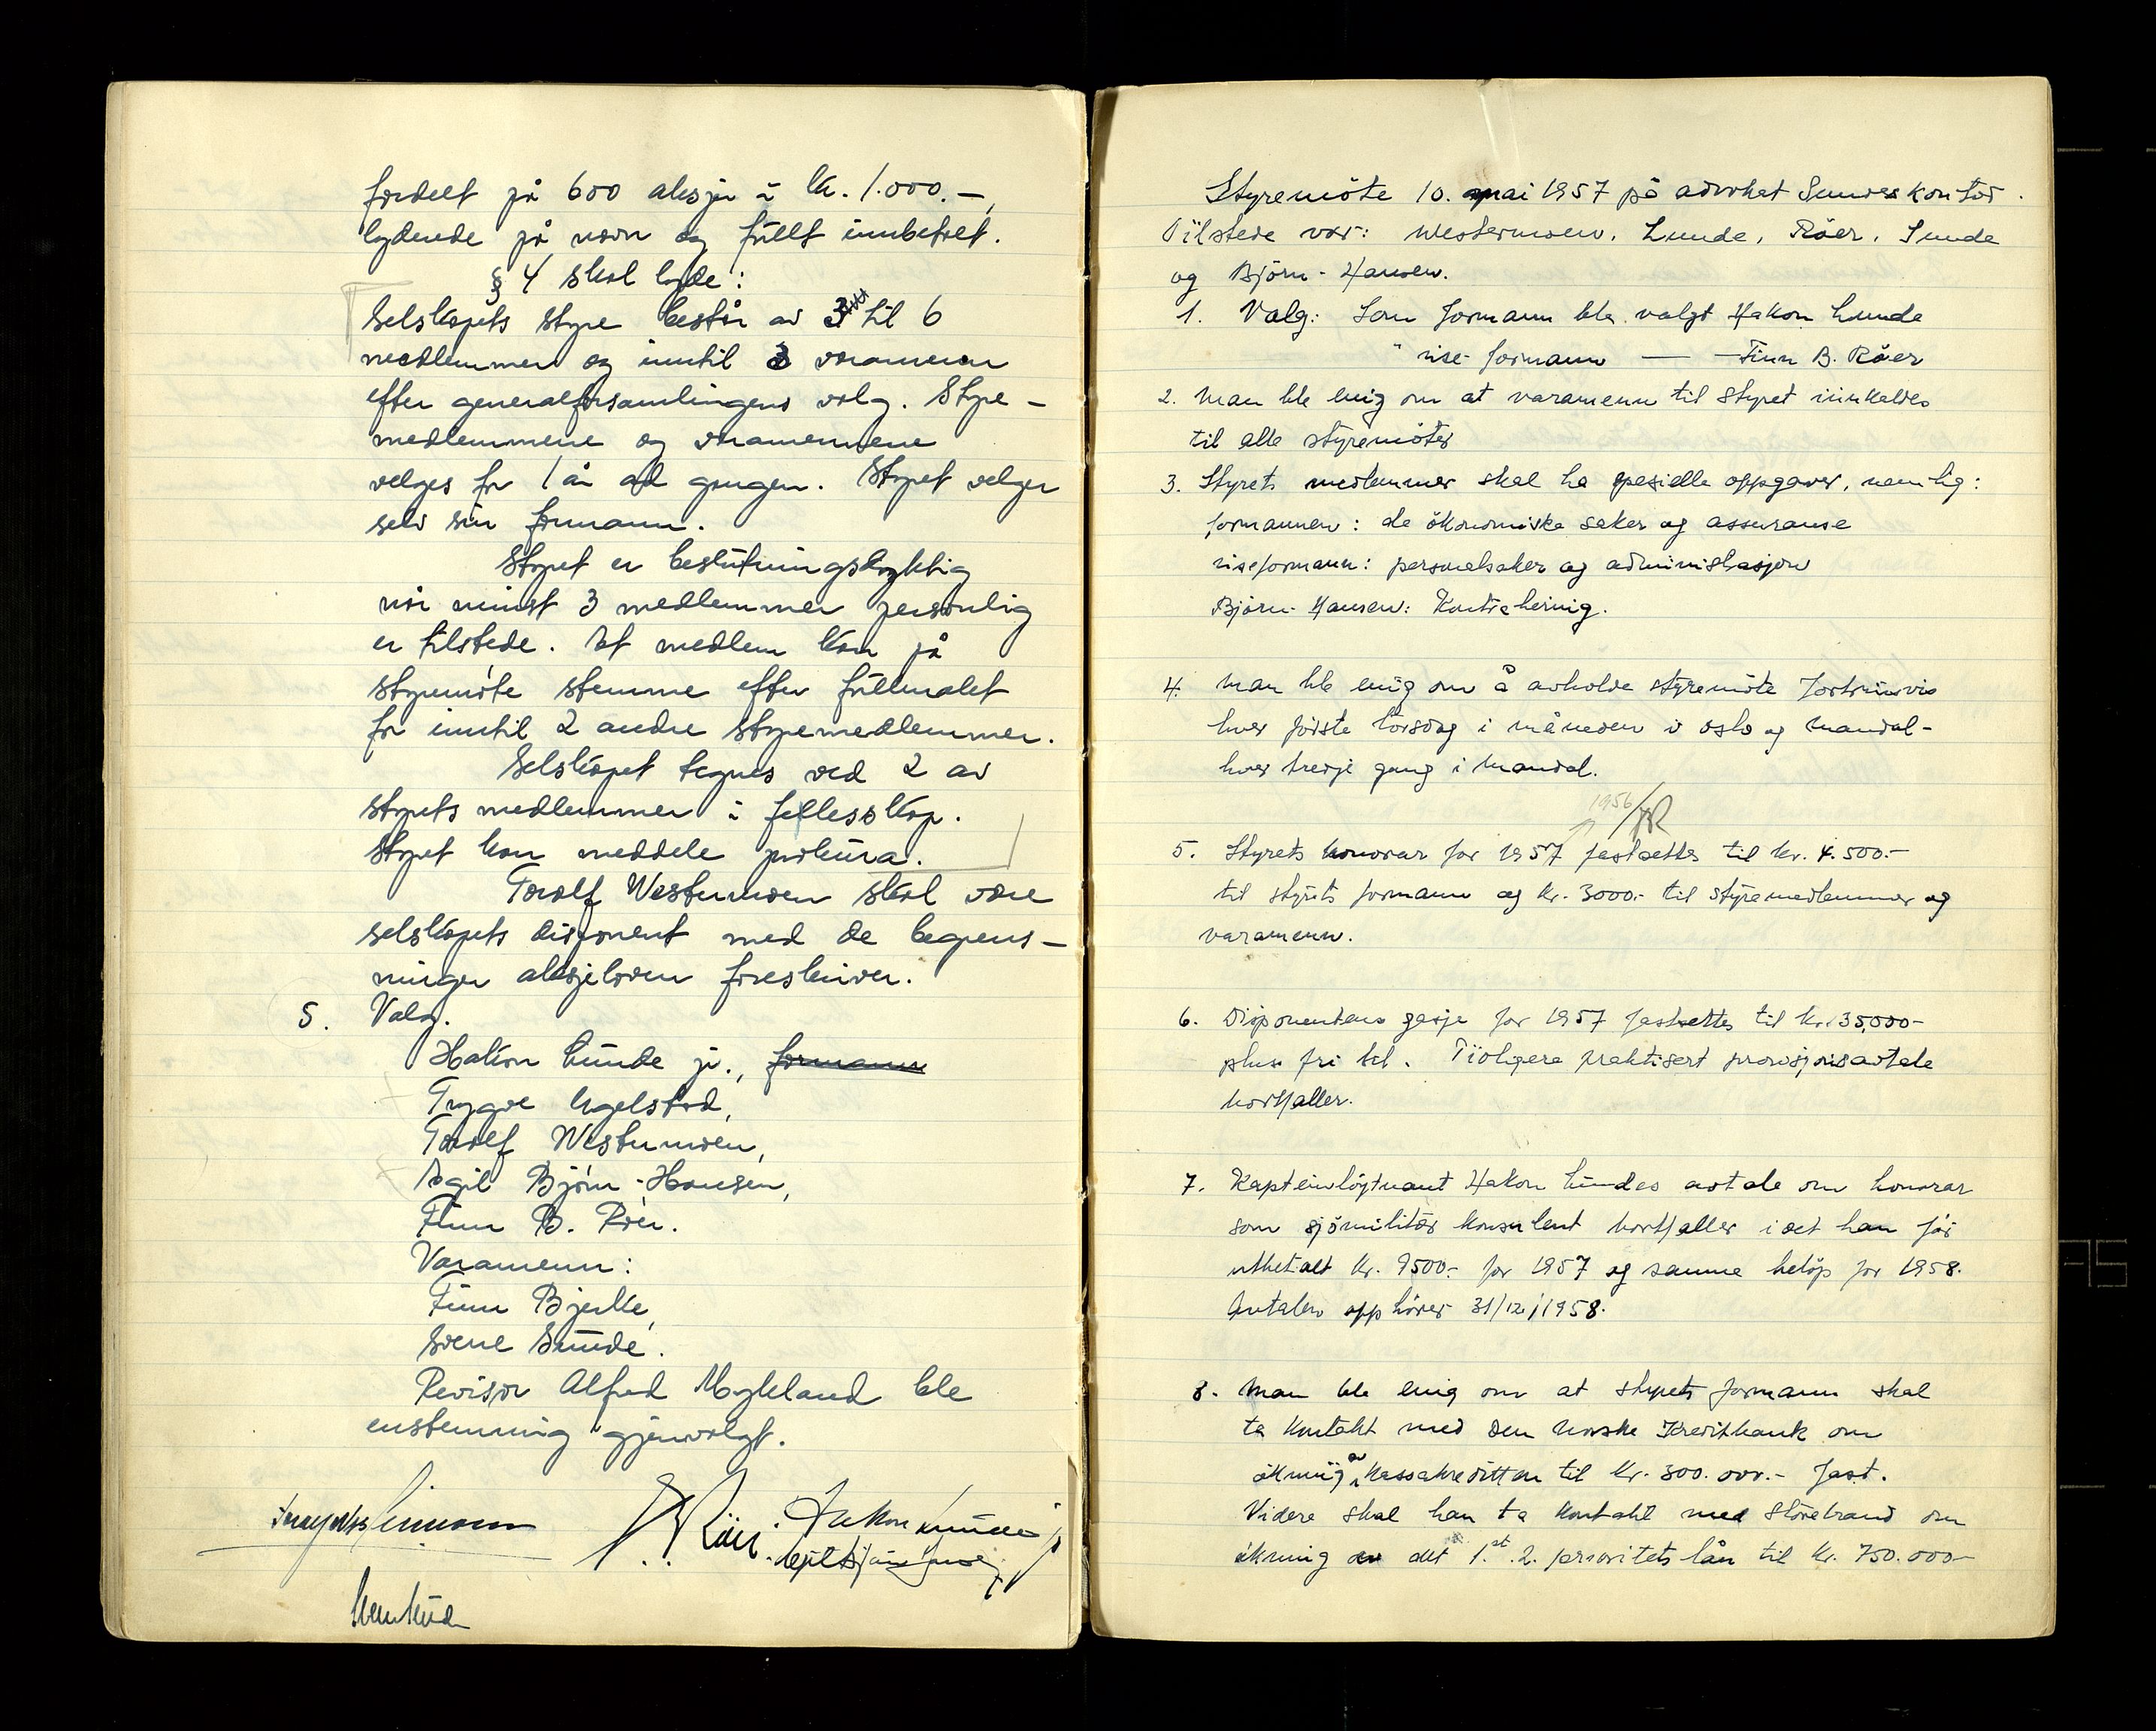 fordelt på 600 aksjer à kr. 1.000.-,
lydende på navn og fullt innbetalt.
§ 4 skal lyde:
Selskapets styre består av 3 til 6
medlemmer og inntil 3 varamenn
efter generalforsamlingens valg. Styre-
medlemmene og varamennene
velges for 1 år ad gangen. Styret velger
selv sin formann.
Styret er beslutningsdyktig
når minst 3 medlemmer personlig
er tilstede. Et medlem kan på
styremøte stemme efter fullmakt
for inntil 2 andre styremedlemmer.
Selskapet tegnes ved 2 av
styrets medlemmer i fellesskap.
Styret kan meddele prokura.
Torolf Westermoen skal være
selskapets disponent med de begrens-
ninger aksjeloven foreskriver.
5. Valg.
Hakon Lunde jr., formann
Trygve Engelstad,
Torolf Westermoen,
Egil Bjørn-Hansen,
Finn B. Röer.
Varamenn:
Finn Bjerke,
Svene Sunde.
Revisor Alfred Mykland ble
enstemmig gjenvalgt.
Röer. Hakon Lunde jr
Styremöte 10. mai 1957 på advokat Sundes kontor.
Tilstede var: Westermoen, Lunde, Röer, Sunde
og Björn-Hansen.
1. Valg: Som formann ble valgt Hakon Lunde
" vise-formann — — Finn B. Röer
2. Man ble enig om at varamenn til styret innkaldes
til alle styremöter
3. Styrets medlemmer skal ha spesielle oppgaver, nemlig:
formannen: de ökonomiske saker og assuranse
viseformann: personelsaker og administrasjon
Björn-Hansen: Kontrahering.
4. Man ble enig om å avholde styremöte fortrinsvis
hver förste torsdag i måneden i Oslo og Mandal-
hver tredje gang i Mandal.
1956
5. Styrets honorar for 1957 fastsettes til kr. 4.500.-
til styrets formann og kr. 3000.- til styremedlemmer og
varamenn.
6. Disponentens gasje for 1957 fastsettes til kr. 35,000-
plus fri bil. Tidligere praktisert provisjonsavtale
bortfaller.
7. Kapteinlöytnant Hakon Lundes avtale om honorar
som sjömilitær konsulent bortfaller i det han får
utbetalt kr. 9500.- for 1957 og samme belöp for 1958.
Avtalen opphörer 31/12/1958.
8. Man ble enig om at styrets formann skal
ta kontakt med Den Norske Kreditbank om
ökning av kassakreditten til kr. 300.000.- fast.
Videre skal han ta kontakt med Storebrand om
ökning av det 1. st. 2. prioritets lån til kr. 750.000-